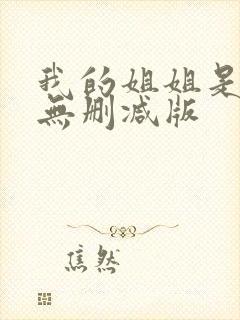 我的姐姐是
無删减版
焦然